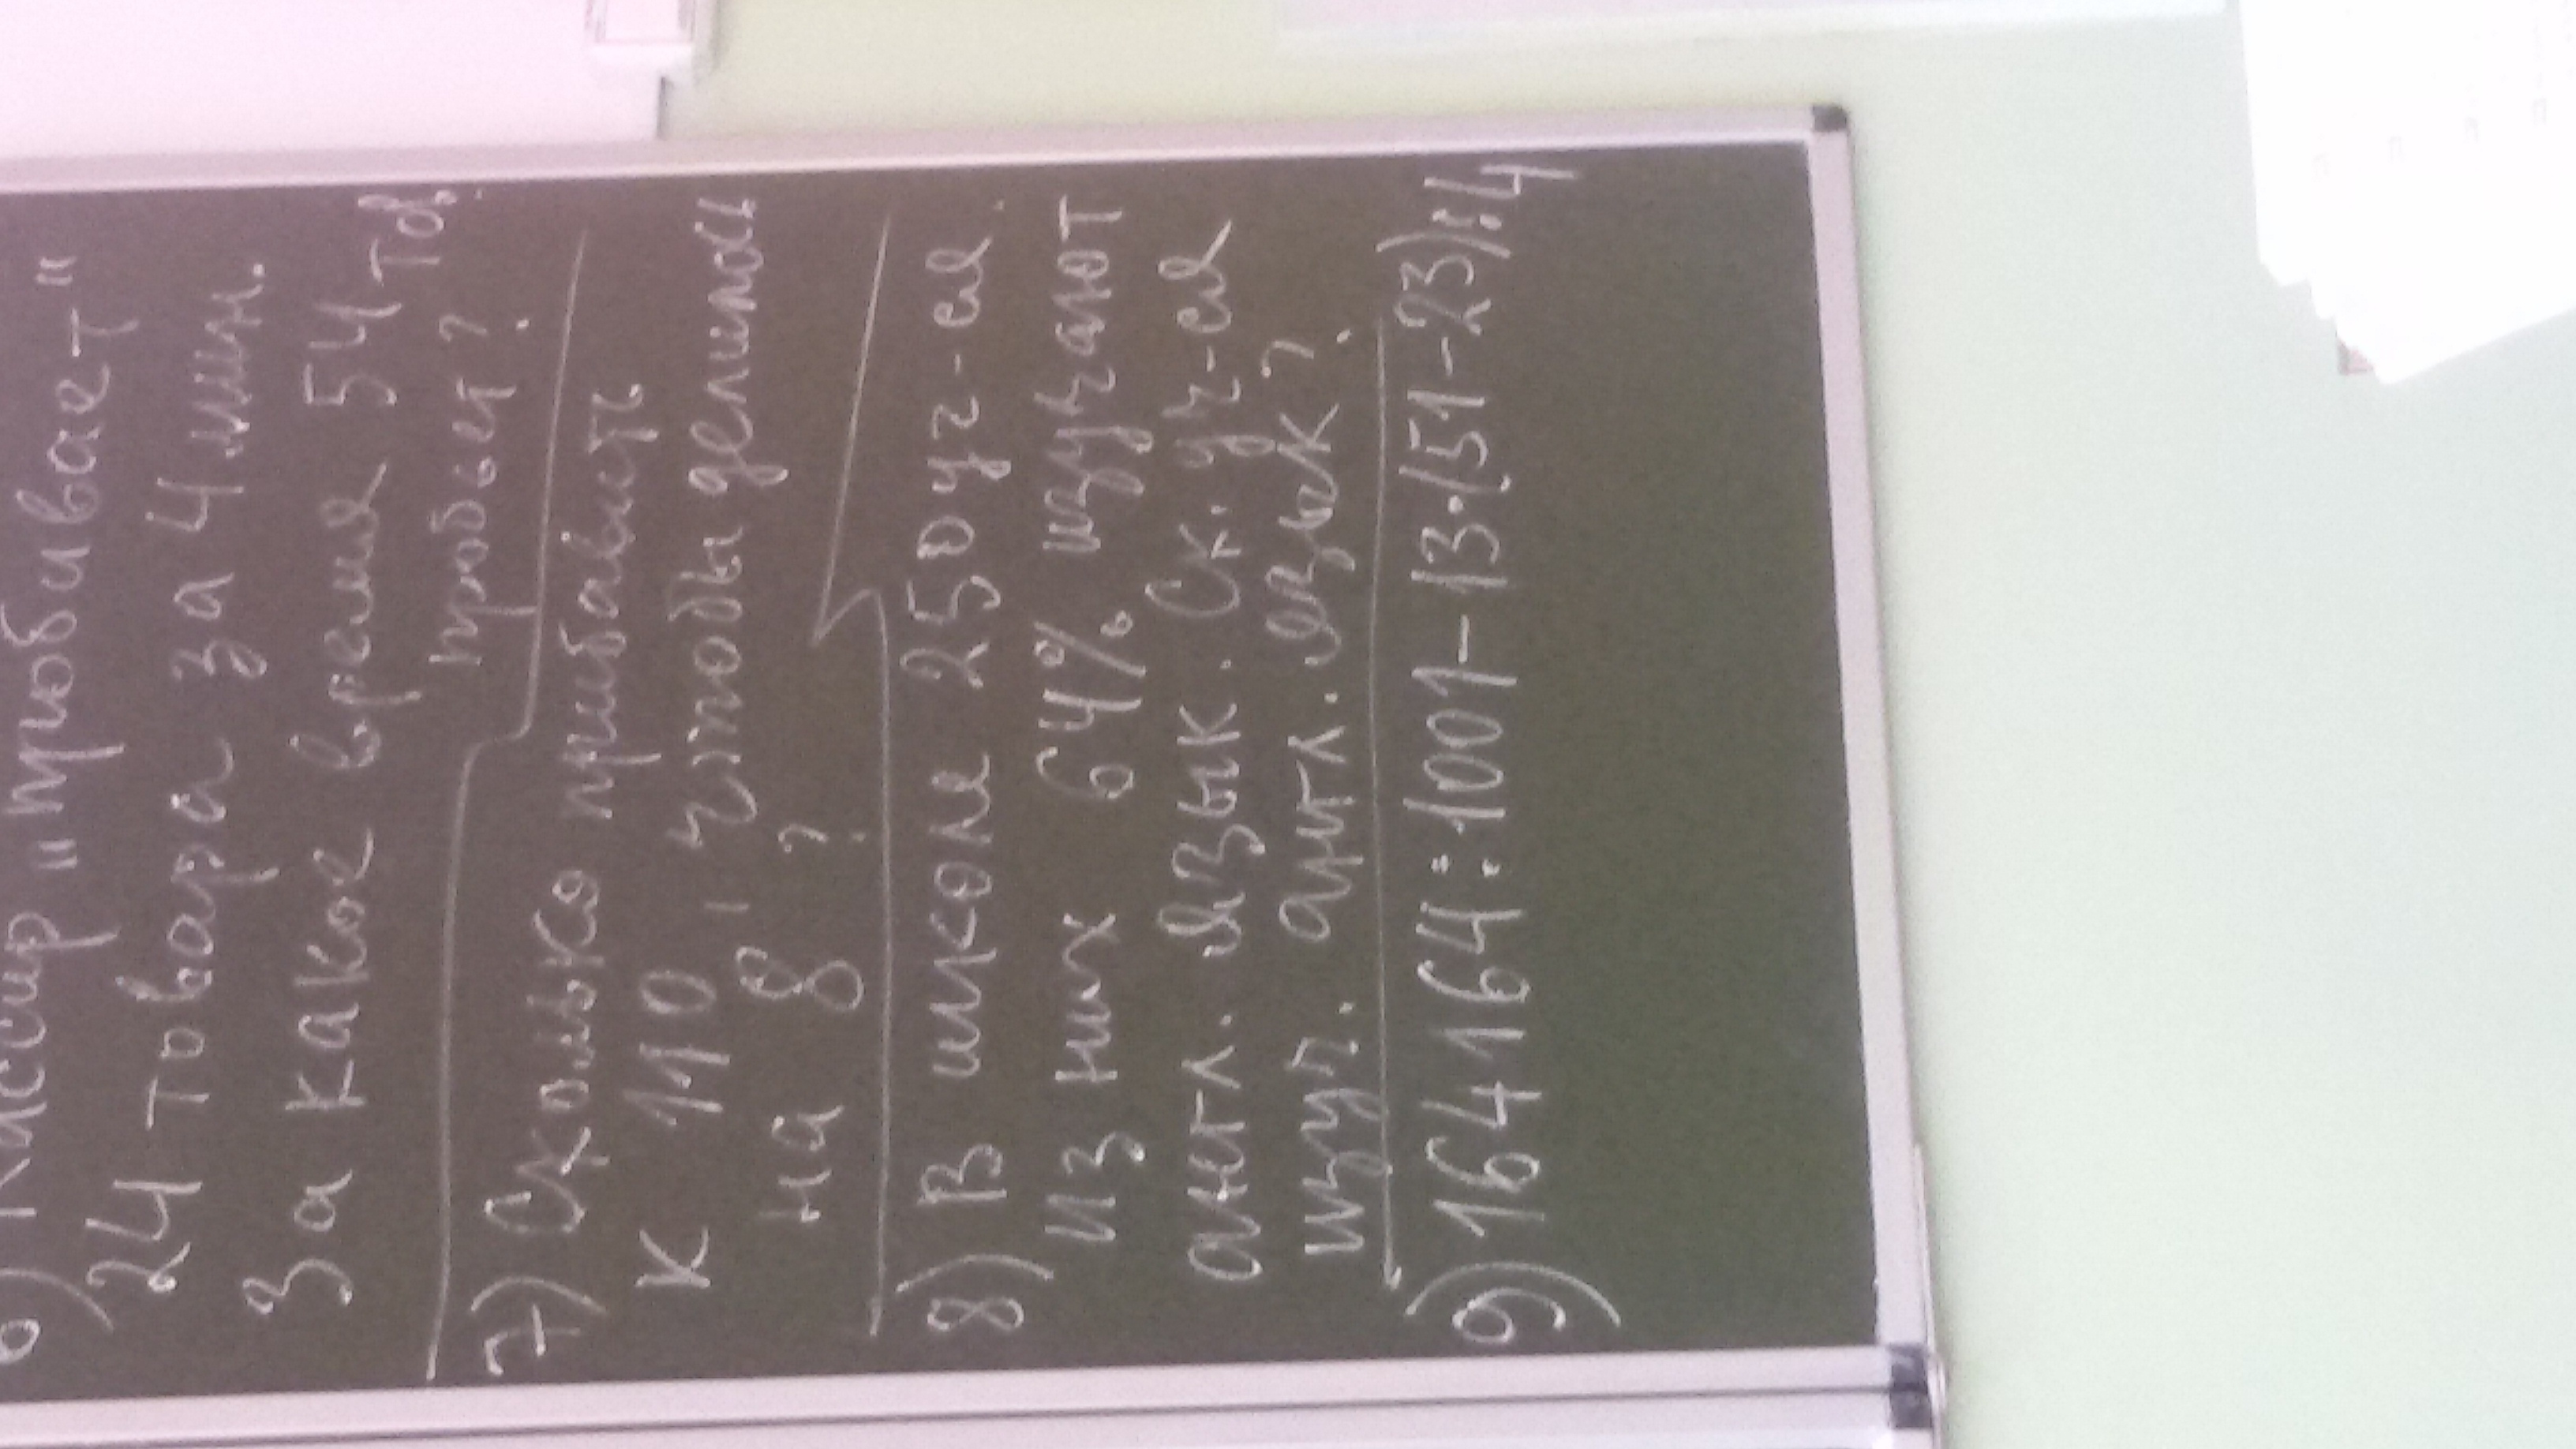 6) Кассир "пробивает"
24 товара за 4 мин.
За какое время 54 тов.
пробьет?
7) Сколько прибавить
к 110, чтобы делилось
на 8?
8) В школе 250 уч-ся.
Из них 64% изучают
англ. язык. Ск. уч-ся
изуч. англ. язык?
9) 164164:1001-13·(51-23):4